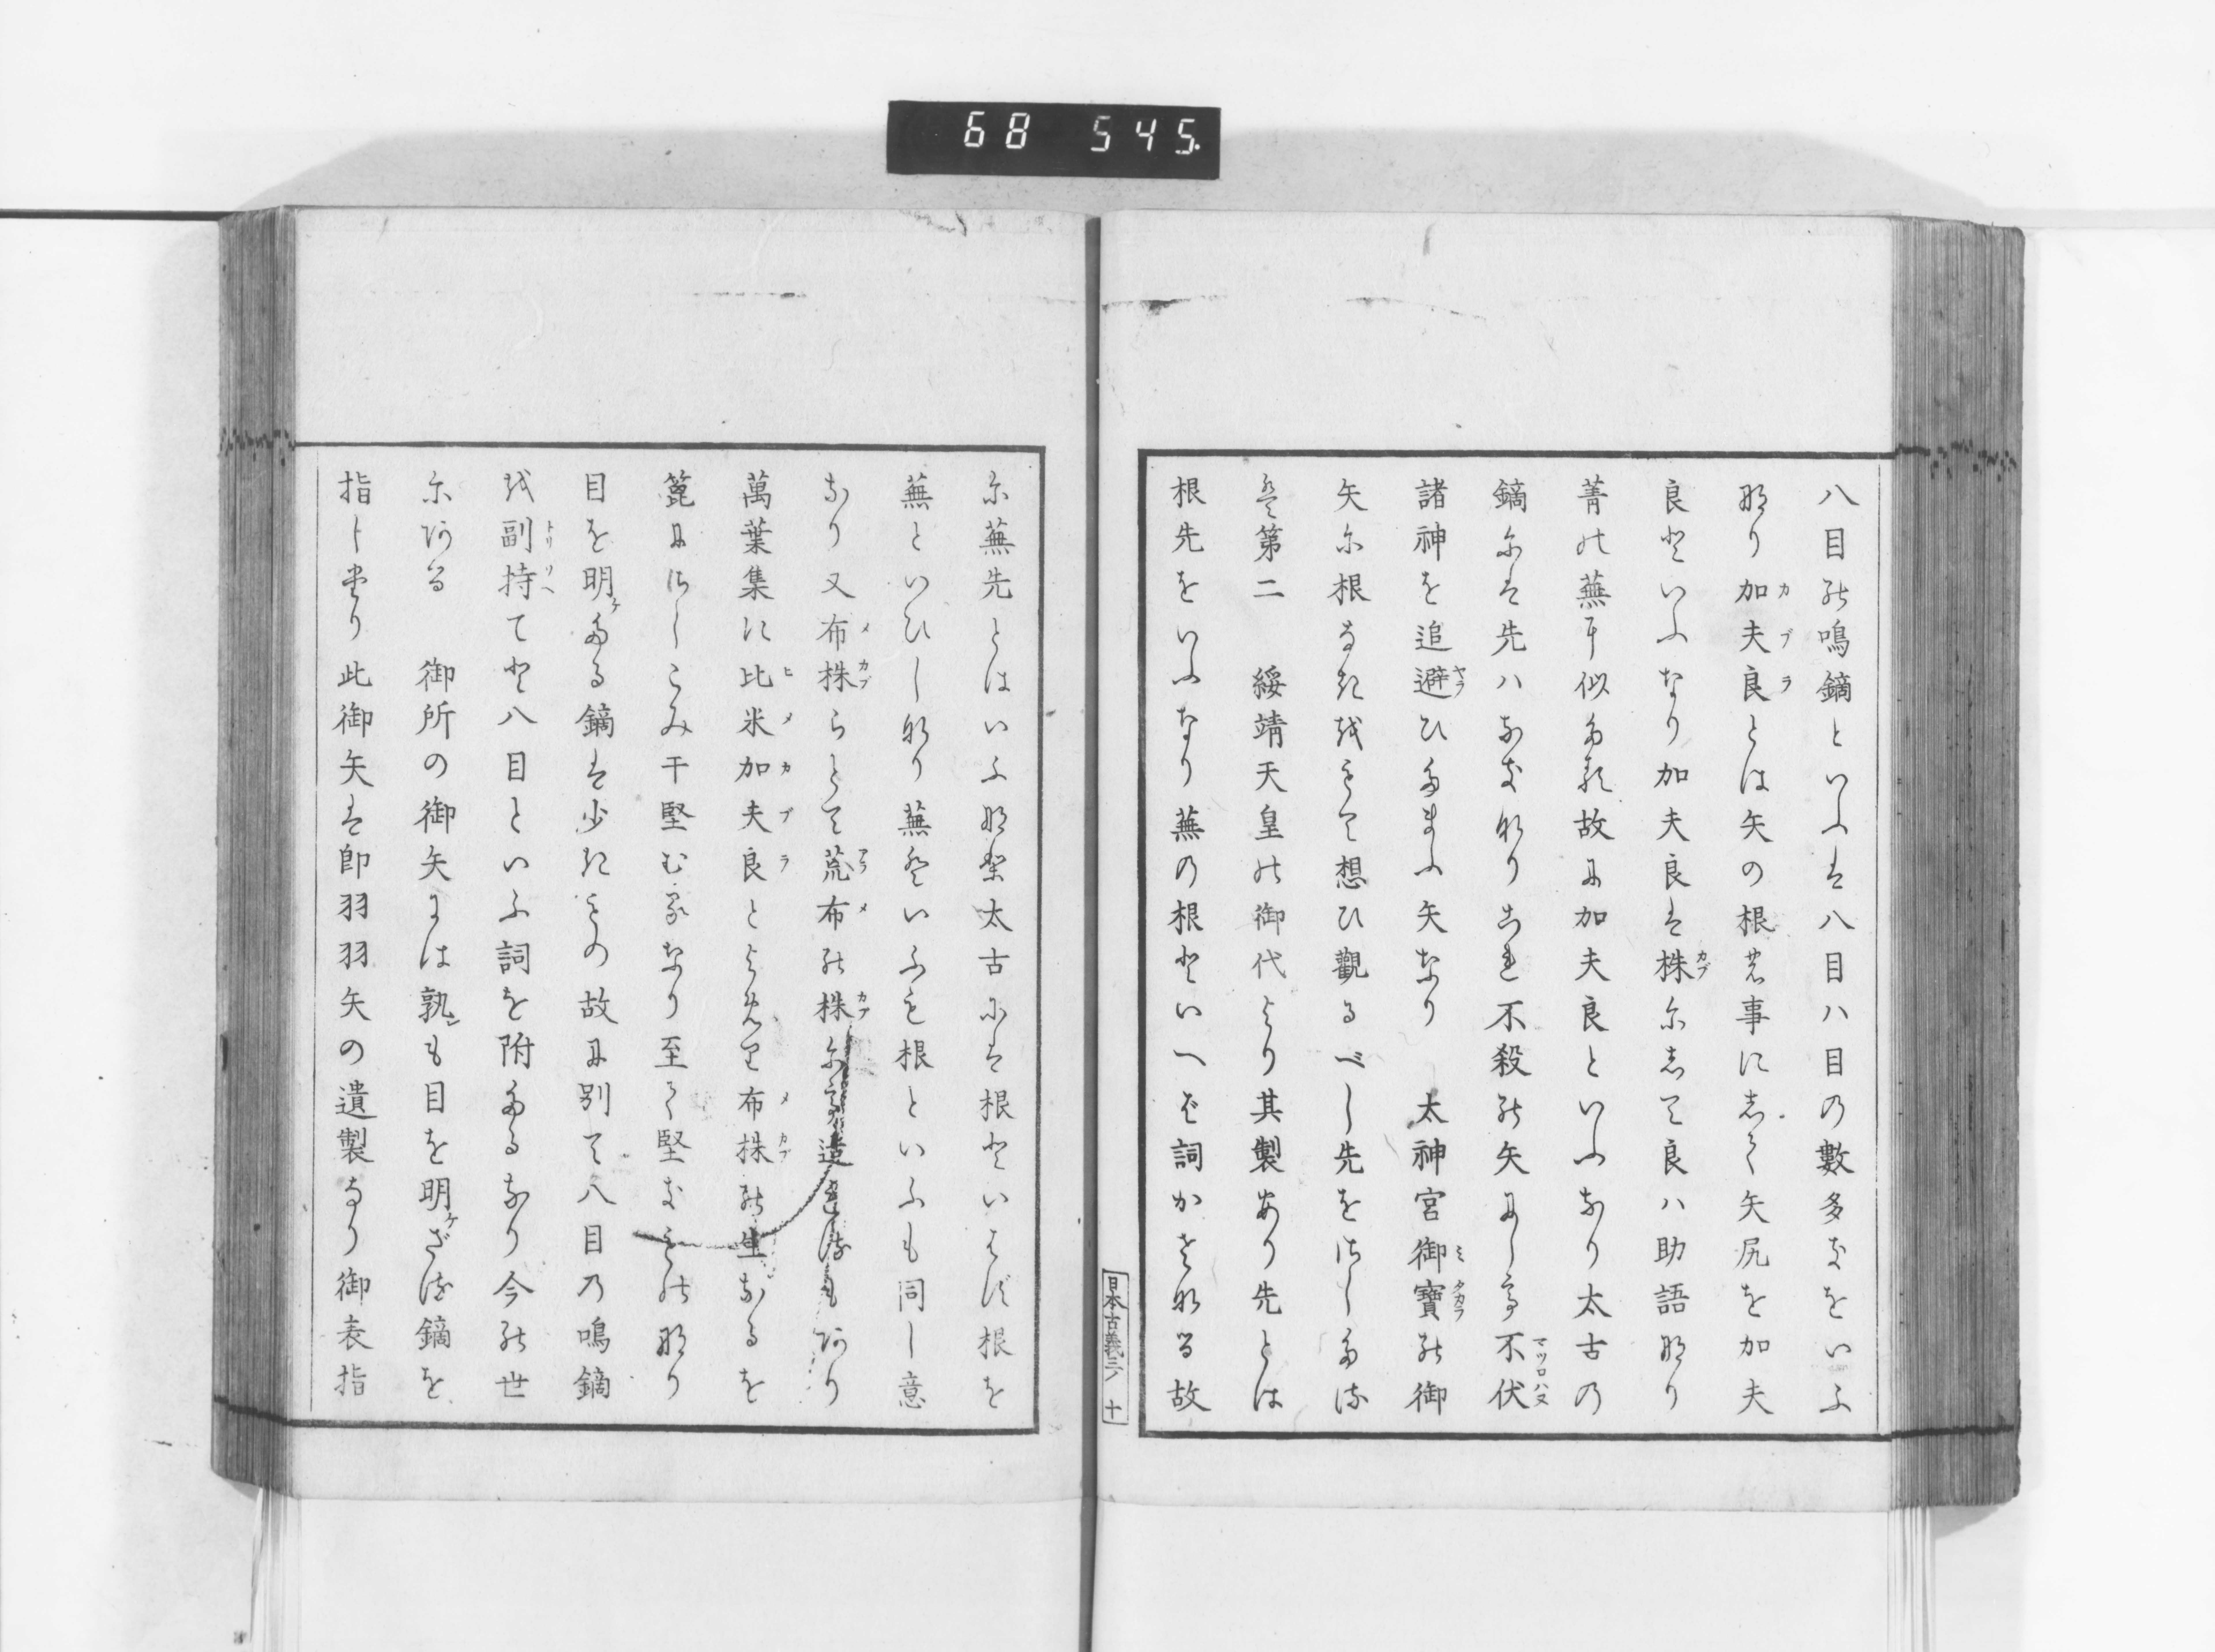 68 545.
八目能鳴鏑といふは八目ハ目の數多なをいふ
那り加夫良とは矢の根の事にして矢尻を加夫
良といふなり加夫良は株にして良ハ助語那り
菁の蕪に似たる故に加夫良といふなり太古の
鏑には先ハなきなりこれ不殺の矢にして不伏
諸神を追避ひたまふ矢なり 太神宮御寶の御
矢に根なきをもて想ひ觀るべし先をさしたる
は第二 綏靖天皇の御代より其製あり先とは
根先をいふなり蕪の根といへば詞かさなる故
日本古義三ノ 十
に蕪先とはいふなり太古には根といはず根を
蕪といひしなり蕪といふも根といふも同し意
なり又布株らとて荒布の株に造れるもあり
萬葉集に比米加夫良とよめり布株の生なるを
箆にさしこみ干堅むるなり至て堅きもの那り
目を明たる鏑は少きもの故に別て八目の鳴鏑
を副持てと八目といふ詞を附たるなり今の世
にある 御所の御矢には孰も目を明ざる鏑を
指したり此御矢は卽羽羽矢の遺製なり御表指